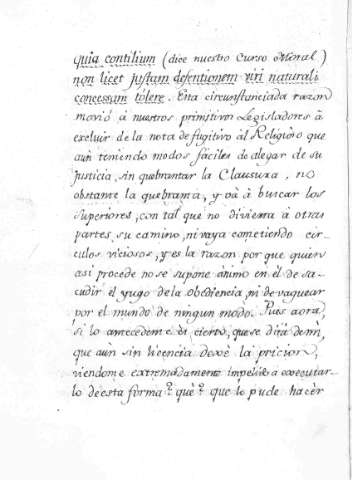 quia contilium (dice nuestro Curso Moral)
non licet justam defentionem viri naturali
concessam tolere. Esta circunstanciada razon
movió á nuestros primitivos Legisladores á
excluir de la nota de fugitivo al Religioso que
aun teniendo modos fáciles de alegar de su
justicia, sin quebrantar la Clausura, no
obstante la quebranta, y vá á buscar los
superiores, con tal que no divierta á otras
partes su camino, ni vaya cometiendo cir-
culos viciosos, y es la razon por que quien
asi procede no se supone ánimo en él de sa-
cudir el yugo de la obediencia, ni de vaguear
por el mundo de ningun modo. Pues aora,
si lo antecedente es cierto, que se dirá de mi,
que aun sin licencia dexè la pricion,
viendome extremadamente impelido a execútar-
lo de esta forma? què? que lo pude hacèr